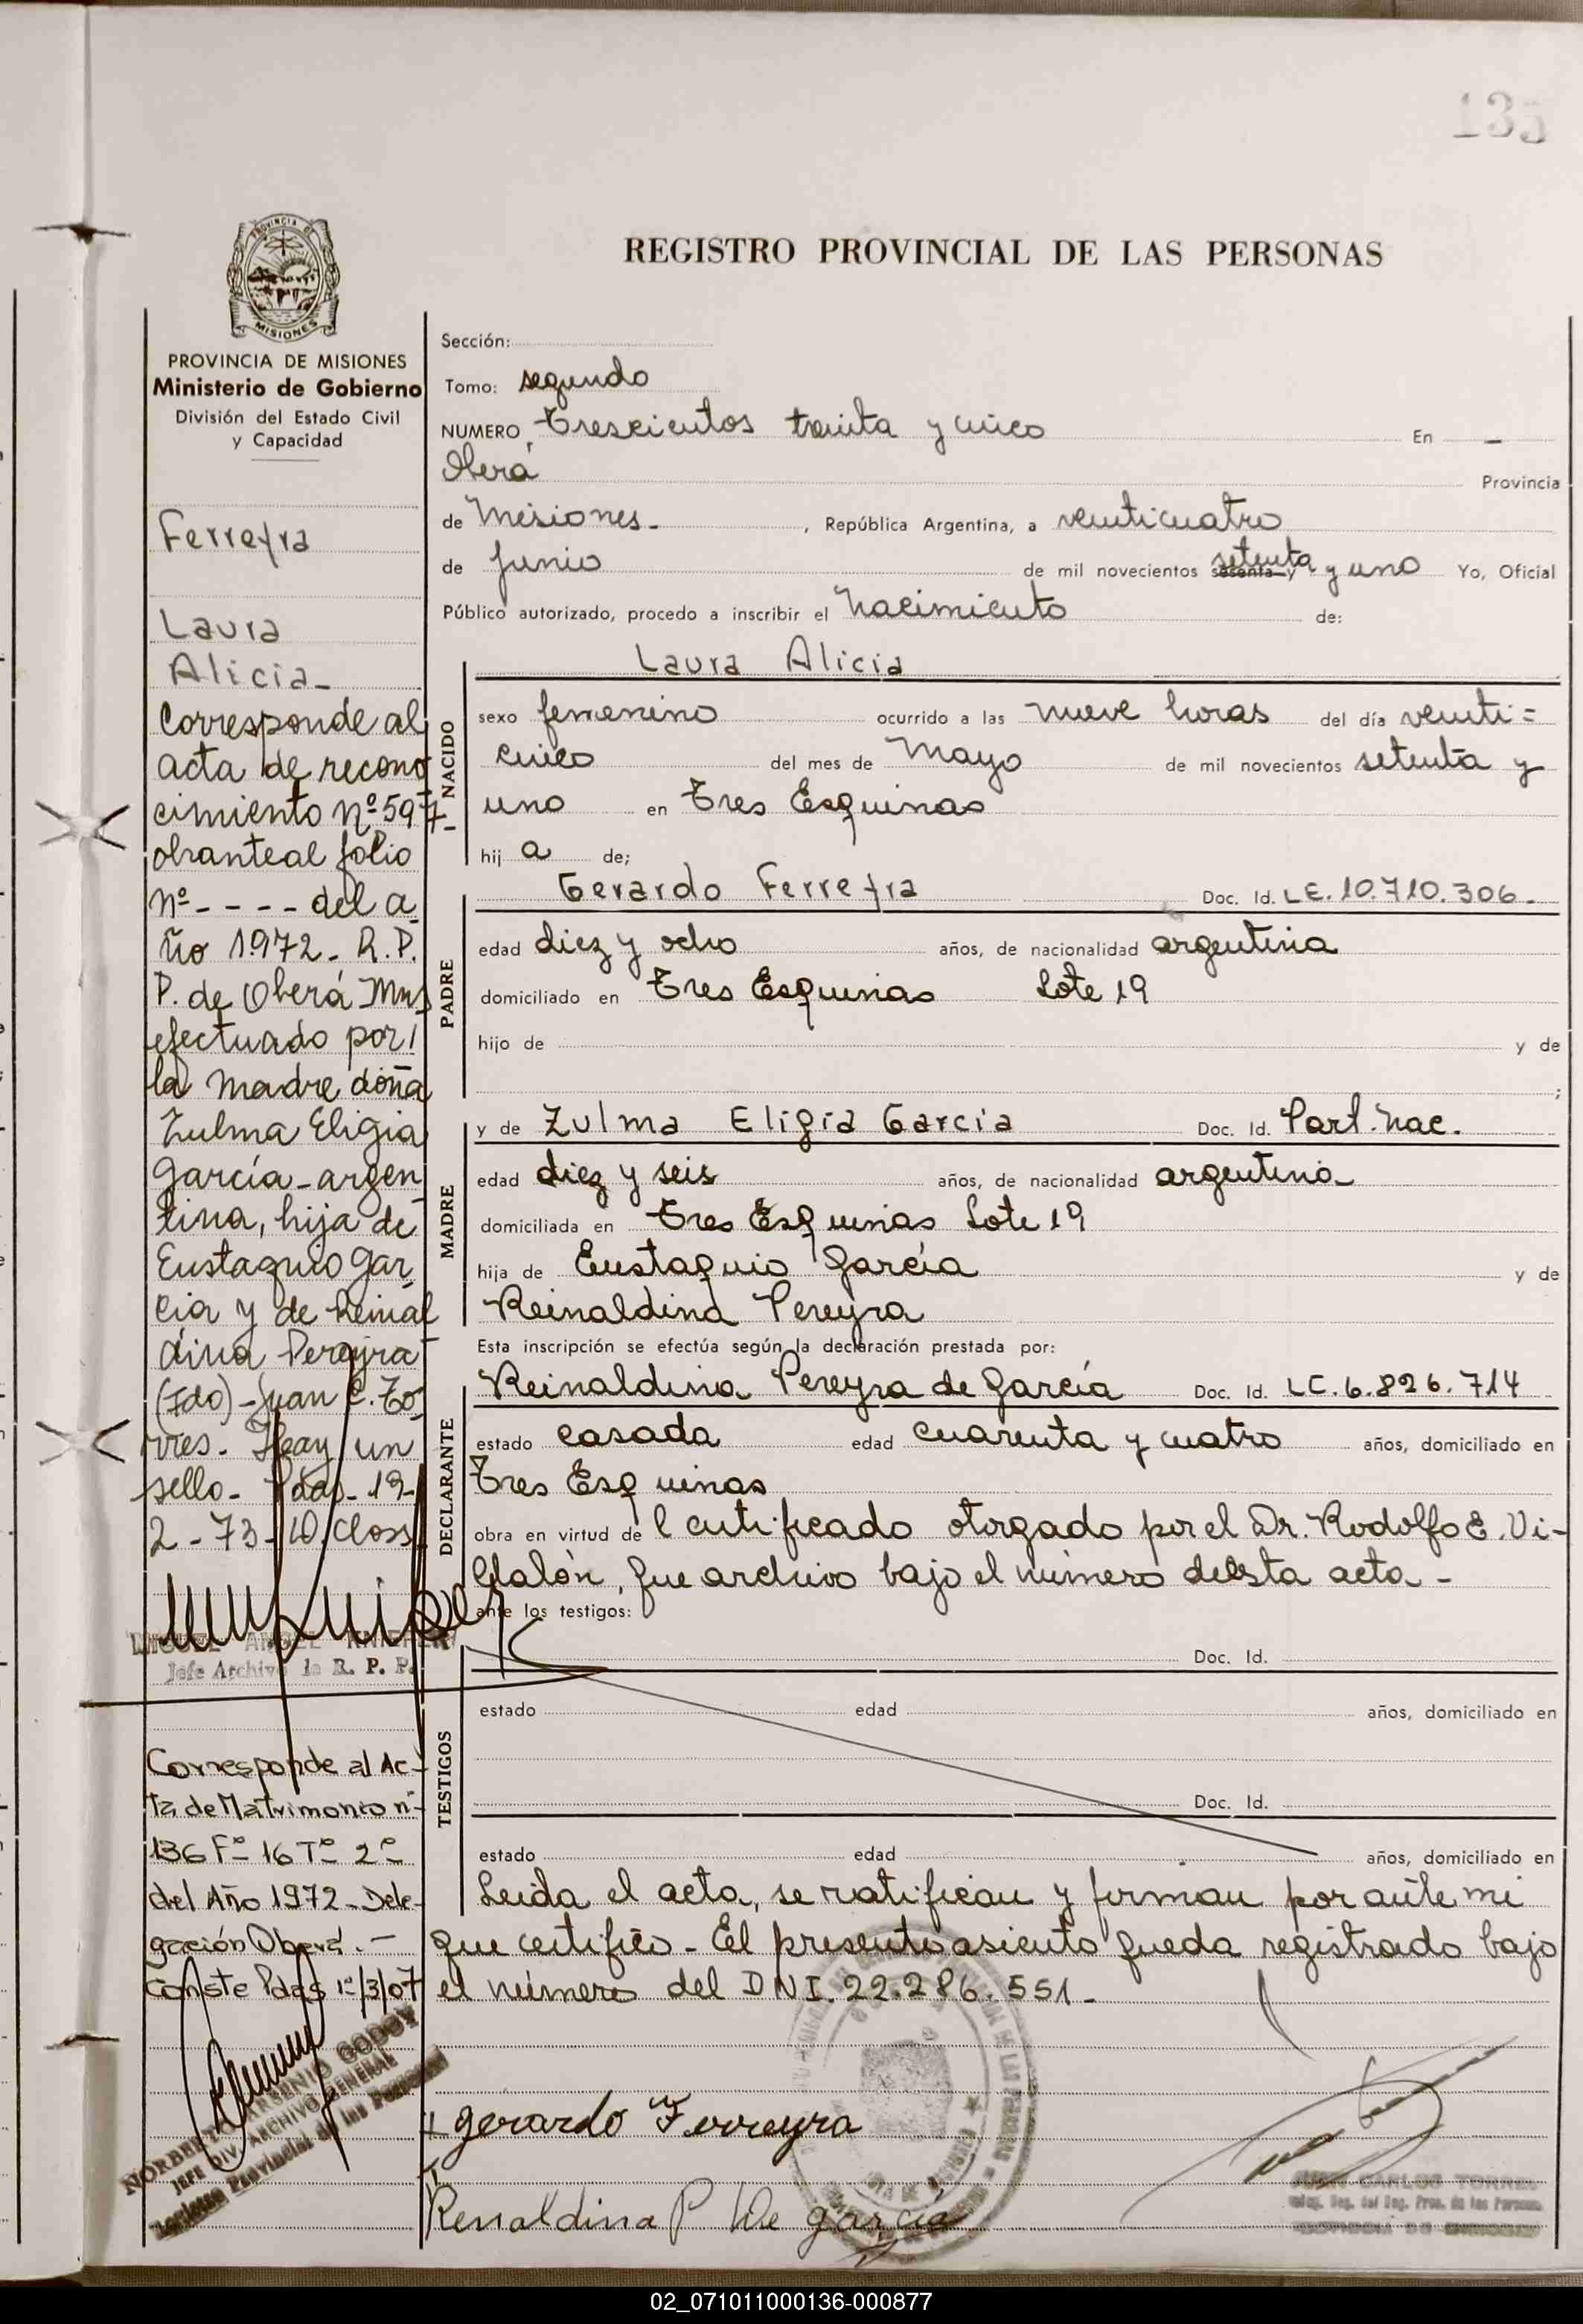 135
REGISTRO PROVINCIAL DE LAS PERSONAS
PROVINCIA DE
MISIONES
PROVINCIA DE MISIONES
Ministerio de Gobierno
División del Estado Civil
y Capacidad
Ferreyra
Laura
Alicia-
Corresponde al
acta de recono
cimiento nº 597-
obrante al folio
nº - - - - del a
ño 1972- R.P.
P. de Oberá Mns
efectuado por/
la madre doña
Zulma Eligia
García - argen
tina, hija de
Eustaquio Gar
cia y de Reinal
dina Pereyra
(Fdo) - Juan C. To
rres. Heay un
sello- Pdas- 19-
2-73- W. Closs
MIGUEL ANGEL
Jefe Archivo R. P. P.
Corresponde al Ac-
ta de Matrimonio nº
136 Fº 16 Tº 2º
del Año 1972- Dele-
gación Oberá.-
Conste Pdas 1º/3/07
NORBERTO ARSENIO GODOY
JEFE DIV. ARCHIVO GENERAL
Registro Provincial de las Personas
Sección:
Tomo: segundo
NUMERO Trescientos treinta y cinco En -
Oberá Provincia
de Misiones- , República Argentina, a veinticuatro
de Junio de mil novecientos sesenta y setenta y uno Yo, Oficial
Público autorizado, procedo a inscribir el nacimiento de:
Laura Alicia
NACIDO
sexo femenino ocurrido a las nueve horas del día veinti=
cinco del mes de Mayo de mil novecientos setenta y
uno en Tres Esquinas
hij a de;
PADRE
Gerardo Ferreyra Doc. Id. LE. 10.710.306-
edad diez y ocho años, de nacionalidad argentina
domiciliado en Tres Esquinas Lote 19
hijo de y de
;
MADRE
y de Zulma Eligia Garcia Doc. Id. Part. Nac.
edad diez y seis años, de nacionalidad argentina-
domiciliada en Tres Esquinas Lote 19
hija de Eustaquio García y de
Reinaldina Pereyra
Esta inscripción se efectúa según la declaración prestada por:
DECLARANTE
Reinaldina Pereyra de García Doc. Id. LC. 6.826.714
estado casada edad cuarenta y cuatro años, domiciliado en
Tres Esquinas
obra en virtud de l certificado otorgado por el Dr. Rodolfo E. Vi-
llalón, que archivo bajo el número de esta acta-
ante los testigos:
TESTIGOS
Doc. Id.
estado edad años, domiciliado en
Doc. Id.
estado edad años, domiciliado en
Leida el acta, se ratifican y firman por ante mi
que certifico- El presente asiento queda registrado bajo
el número del DNI. 22.286.551-
gerardo Ferreyra
Renaldina P de garcia
JUAN CARLOS TORRES
02_071011000136-000877